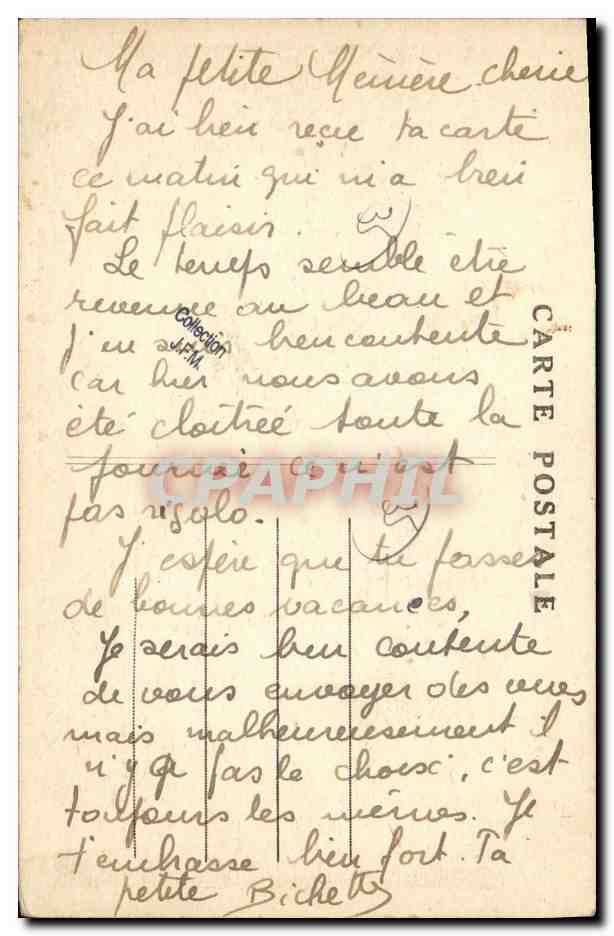 Ma petite Mémère cherie
J'ai bien reçue ta carte
ce matin qui m'a bien
fait plaisir.
Le temps semble être
revenue au beau et
j'en suis bien contente
car hier nous avons
été cloîtrée toute la
journée ce n'est
pas rigolo.
J'espère que tu fasses
de bonnes vacances,
Je serais bien contente
de vous envoyer des vues
mais malheureusement il
n'y a pas le choix, c'est
toujours les mêmes. Je
t'embrasse bien fort. Ta
petite Bichette
CARTE POSTALE
Collection
J.F.M.
CPAPHIL